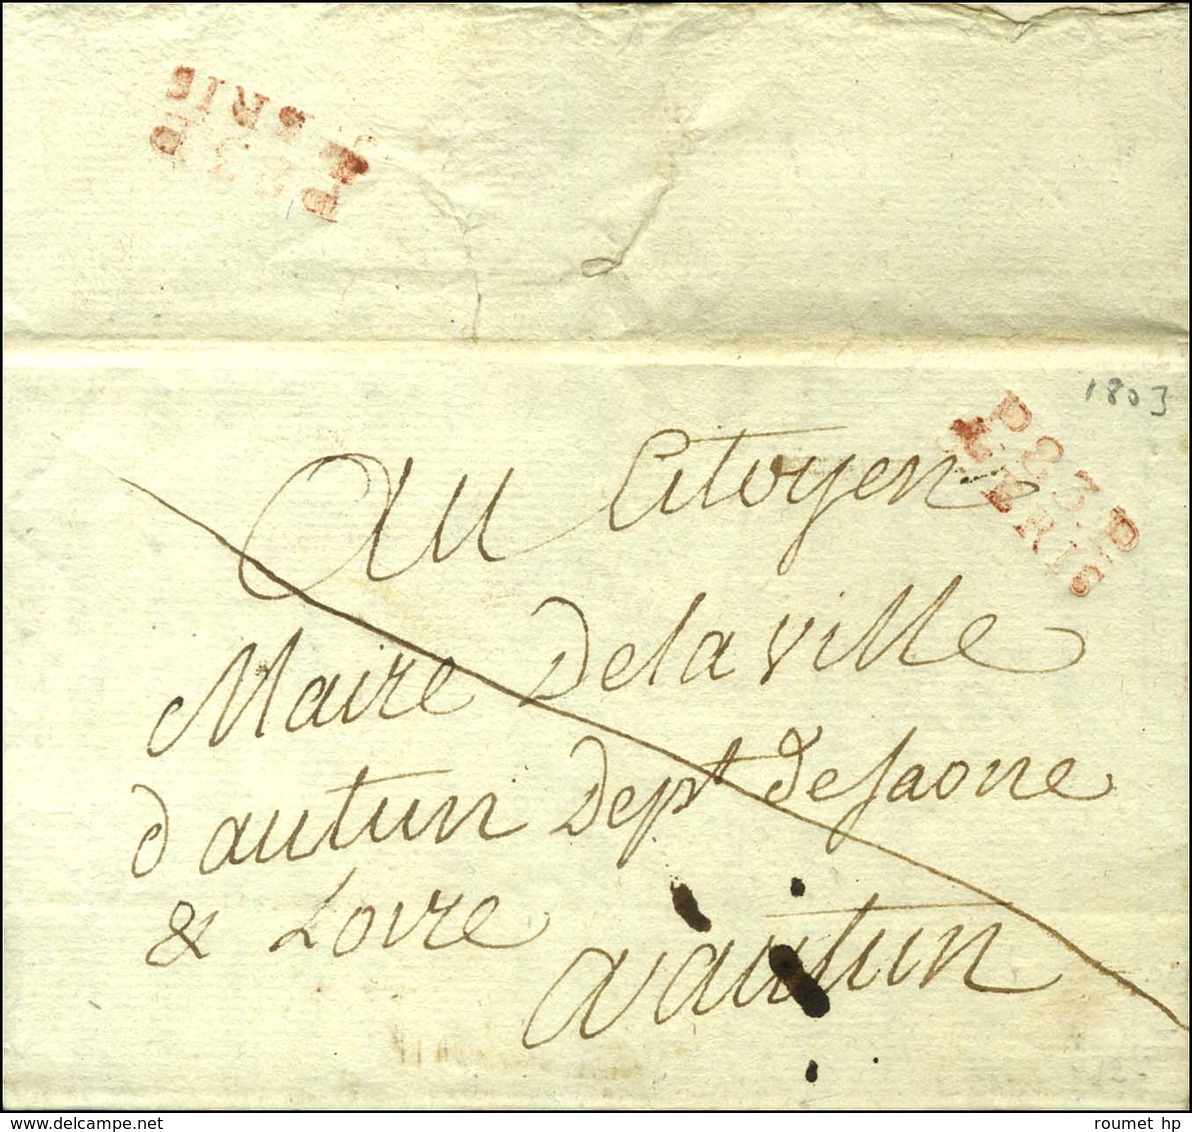 P.83.P
ST BRIS
1803
P.83.P
ST BRIS
Au Citoyen
Maire de la ville
d'autun Dept de Saone
& Loire
a autun
www.delcampe.net
roumet hp